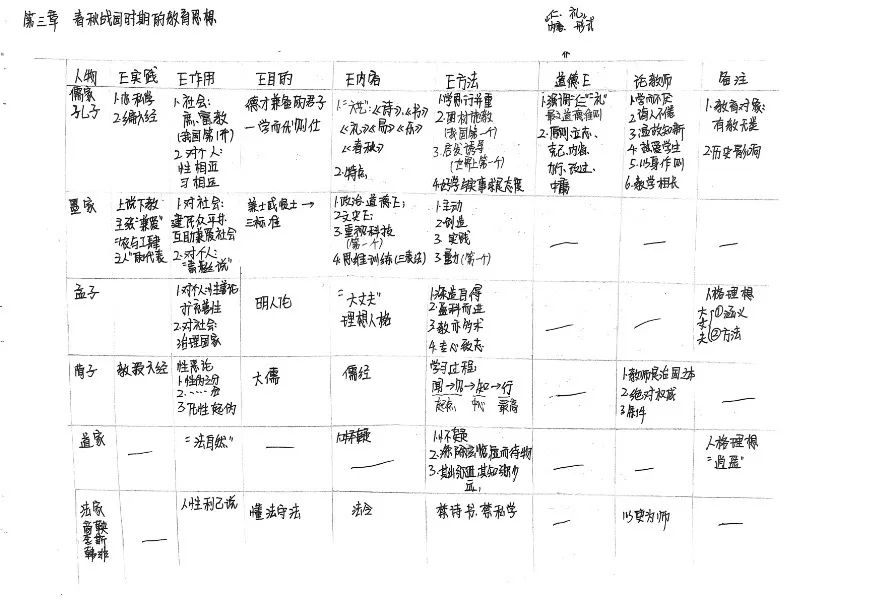 第三章 春秋战国时期的教育思想
仁、礼
内容、形式
人物 E实践 E作用 E目的 E内容 E方法 道德E 论教师 备注
儒家
孔子
1.办私学
2.编六经
1.社会:
庶、富、教
(我国第1个)
2.对个人:
性相近
习相远
德才兼备的君子
—学而优则仕
1."六艺":《诗》《书》
《礼》《易》《乐》
《春秋》
2.特点
1.学思行并重
2.因材施教
(我国第一个)
3.启发诱导
(世界上第一个)
4.好学与实事求是态度
1.强调"仁""礼"
2.原则:立志、
克己、内省、
力行、改过、
中庸
1.学而不厌
2.诲人不倦
3.温故知新
4.热爱学生
5.以身作则
6.教学相长
1.教育对象:
有教无类
2.历史影响
墨家
上说下教
主张"兼爱"
"农与工肆
之人"的代表
1.对社会:
建民众平等
互助兼爱社会
2.对个人:
"素丝说"
兼士或贤士→
三标准
1.政治、道德E;
2.文史E;
3.重视科技
(第一个)
4.思维训练(三表法)
1.主动
2.创造
3.实践
3.量力(第一个)
—
—
—
孟子
1.对个人:性善论
扩充善性
2.对社会
治理国家
明人伦
"大丈夫"
理想人格
1.深造自得
2.盈科而进
3.教亦多术
4.专心致志
—
—
人格理想
大丈夫
①涵义
②方法
荀子
教授六经
性恶论
1.性伪之分
2.…… 合
3.化性起伪
大儒
儒经
学习过程:
闻→见→知→行
起点 中心 最高
—
1.教师是治国之本
2.绝对权威
3.条件
道家
—
"法自然"
—
1.怀疑
—
1.怀疑
—
—
人格理想
"逍遥"
法家
商鞅
李斯
韩非
—
人性利己说
懂法守法
法令
禁诗书、禁私学
—
以吏为师
—